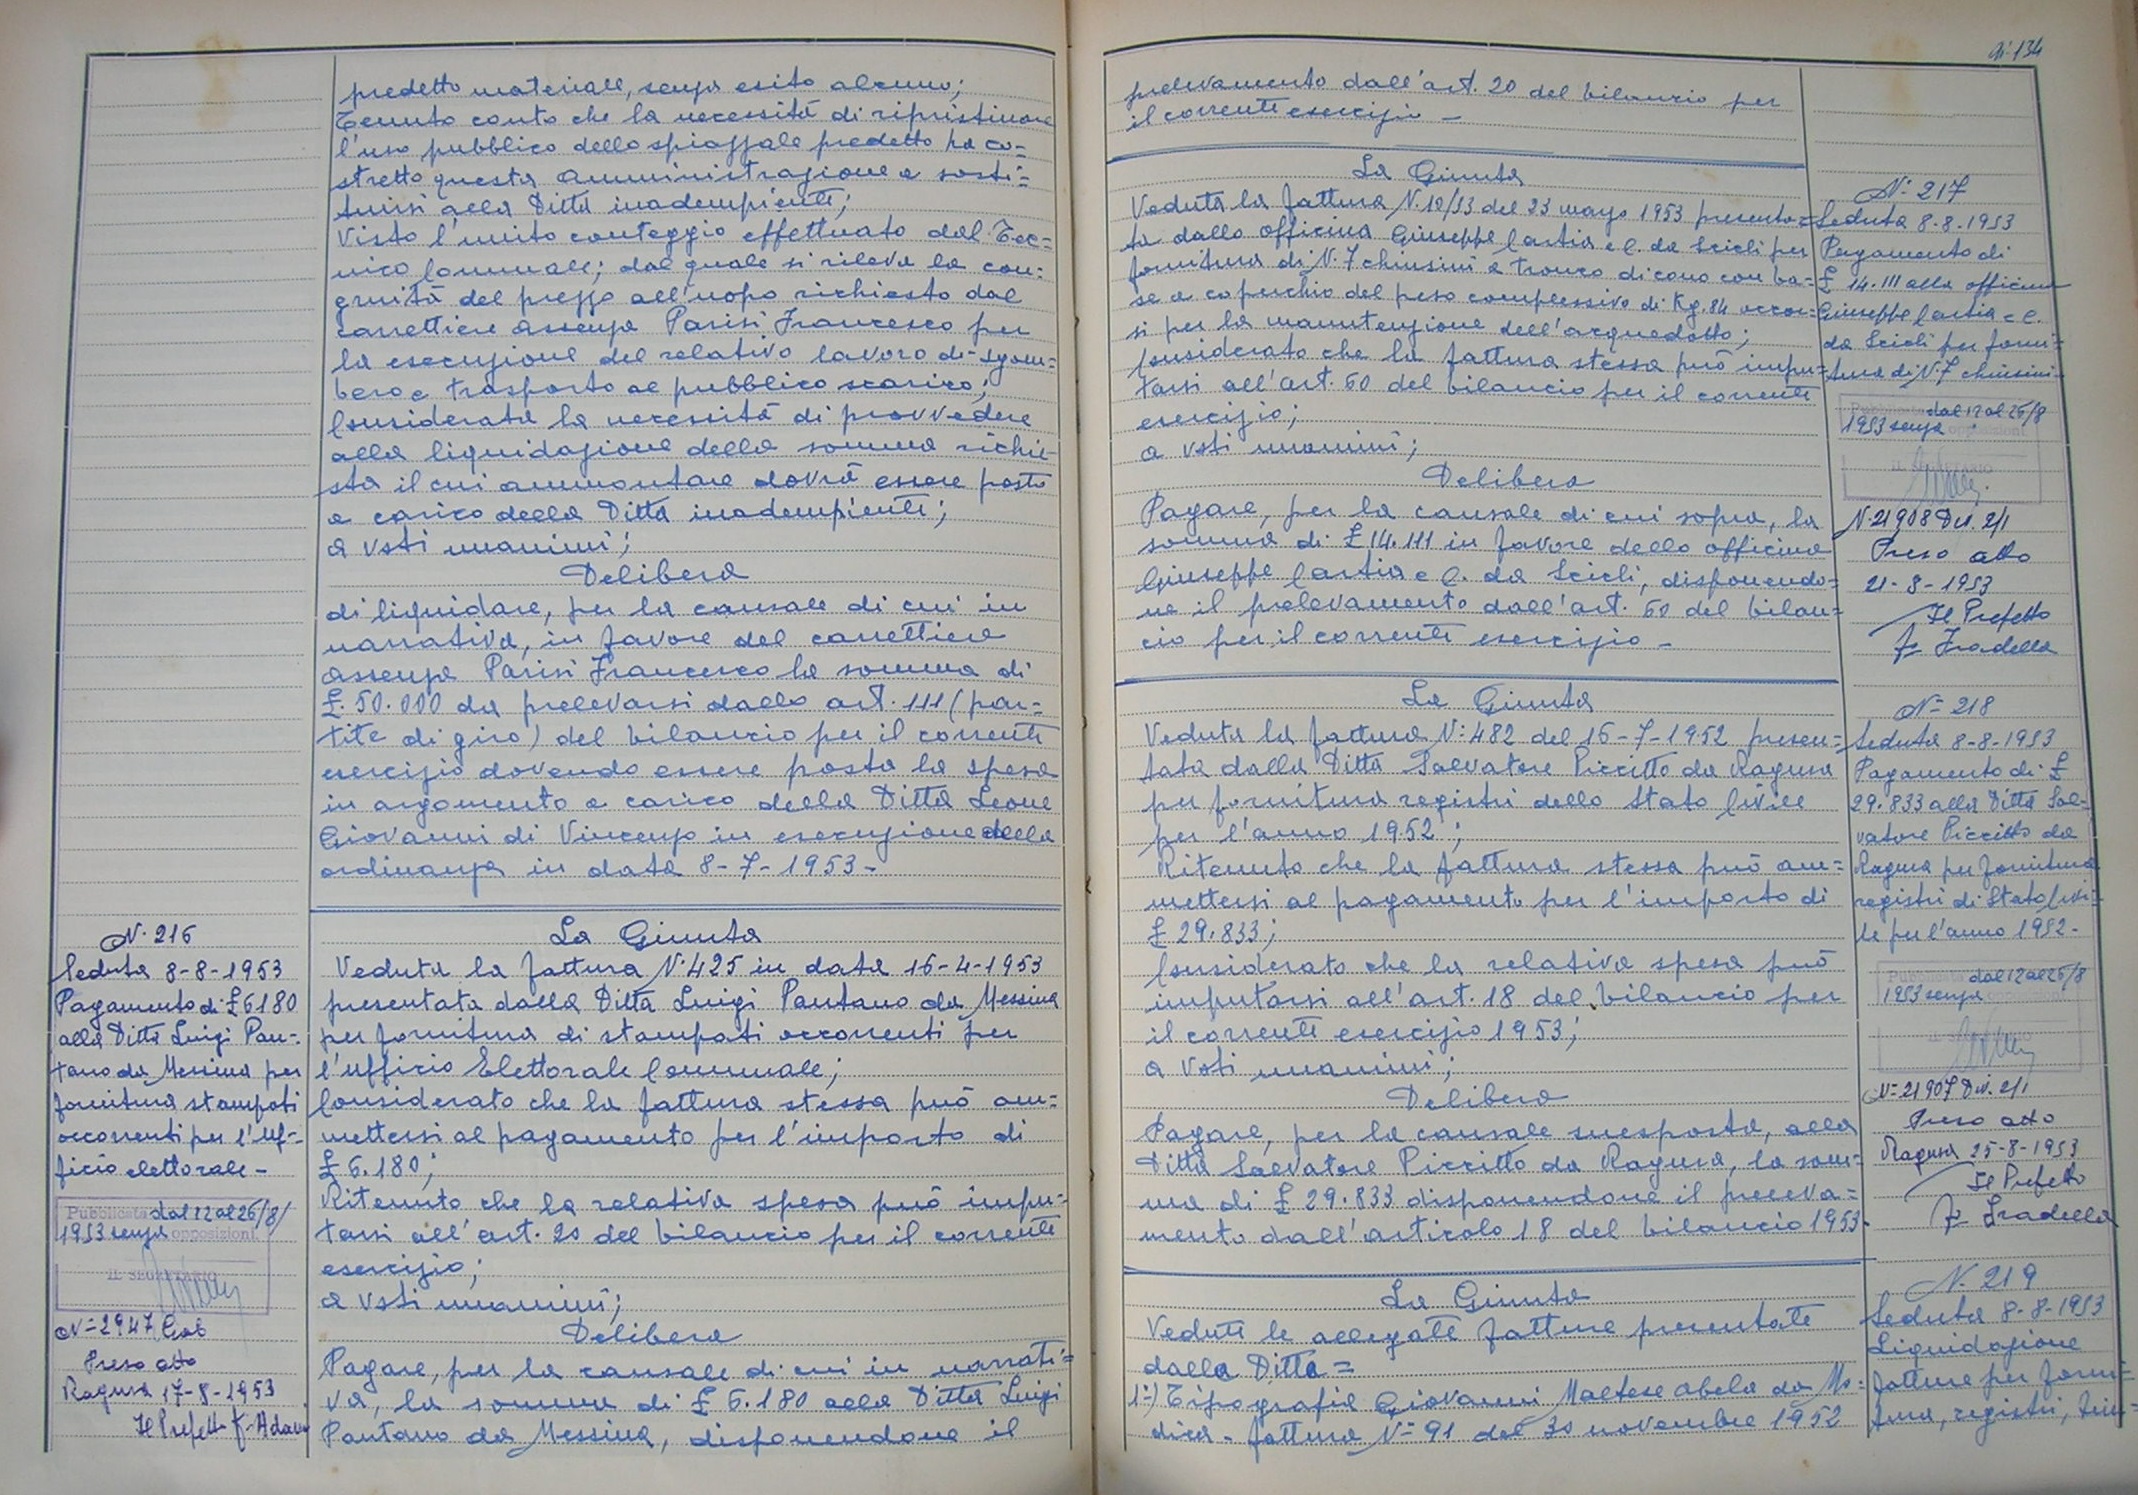 predetto materiale, senza esito alcuno;
Tenuto conto che la necessità di ripristinare
l'uso pubblico dello spiazzale predetto ha co=
stretto questa Amministrazione a sosti=
tuirsi alla Ditta inadempiente;
Visto l'unito conteggio effettuato dal Tec=
nico Comunale; dal quale si rileva la con=
gruità del prezzo all'uopo richiesto dal
carrettiere Assenza Parisi Francesco per
la esecuzione del relativo lavoro di sgom=
bero e trasporto al pubblico scarico;
Considerata la necessità di provvedere
alla liquidazione della somma richie=
sta il cui ammontare dovrà essere posto
a carico della Ditta inadempiente;
a voti unanimi;
Delibera
di liquidare, per la causale di cui in
narrativa, in favore del carrettiere
Assenza Parisi Francesco la somma di
£. 50.000 da prelevarsi dallo art. 111 (par=
tite di giro) del bilancio per il corrente
esercizio dovendo essere posta la spesa
in argomento a carico della Ditta Leone
Giovanni di Vincenzo in esecuzione della
ordinanza in data 8-7-1953-
N. 216
Seduta 8-8-1953
Pagamento di £ 6180
alla Ditta Luigi Pan=
tano da Messina per
fornitura stampati
occorrenti per l'Uf=
ficio elettorale-
Pubblicata dal 12 al 26/8/
1953 senza opposizioni
IL SEGRETARIO
N=2947 Gab
Preso atto
Ragusa 17-8-1953
Il Prefetto
La Giunta
Veduta la fattura N. 425 in data 16-4-1953
presentata dalla Ditta Luigi Pantano da Messina
per fornitura di stampati occorrenti per
l'ufficio Elettorale Comunale;
Considerato che la fattura stessa può am=
mettersi al pagamento per l'importo di
£ 6.180;
Ritenuto che la relativa spesa può impu=
tarsi all'art. 20 del bilancio per il corrente
esercizio;
a voti unanimi;
Delibera
Pagare, per la causale di cui in narrati=
va, la somma di £ 6.180 alla Ditta Luigi
Pantano da Messina, disponendone il
134
prelevamento dall'art. 20 del bilancio per
il corrente esercizio -
La Giunta
Veduta la fattura N. 10/53 del 23 maggio 1953 presenta=
ta dallo officina Giuseppe Cartia e C. da Scicli per
fornitura di N. 7 chiusini a tronco di cono con ba=
se a coperchio del peso complessivo di Kg. 84 occor=
si per la manutenzione dell'acquedotto;
Considerato che la fattura stessa può impu=
tarsi all'art. 60 del bilancio per il corrente
esercizio;
a voti unanimi;
Delibera
Pagare, per la causale di cui sopra, la
somma di £ 14.111 in favore dello officina
Giuseppe Cartia e C. da Scicli, disponendo=
ne il prelevamento dall'art. 60 del bilan=
cio per il corrente esercizio -
N= 217
Seduta 8-8-1953
Pagamento di
£ 14.111 alla officina
Giuseppe Cartia e C.
da Scicli per forni=
tura di N. 7 chiusini-
Pubblicata dal 12 al 26/8
1953 senza opposizioni
IL SEGRETARIO
N. 21908 Div. 2/1
Preso atto
21-8-1953
Il Prefetto
La Giunta
Veduta la fattura N: 482 del 16-7-1952 presen=
tata dalla Ditta Salvatore Piccitto da Ragusa
per fornitura registri dello Stato Civile
per l'anno 1952;
Ritenuto che la fattura stessa può am=
mettersi al pagamento per l'importo di
£ 29.833;
Considerato che la relativa spesa può
imputarsi all'art. 18 del bilancio per
il corrente esercizio 1953;
a voti unanimi;
Delibera
Pagare, per la causale suesposta, alla
Ditta Salvatore Piccitto da Ragusa, la som=
ma di £ 29.833 disponendone il preleva=
mento dall'articolo 18 del bilancio 1953.
N= 218
Seduta 8-8-1953
Pagamento di £
29.833 alla Ditta Sal=
vatore Piccitto da
Ragusa per fornitura
registri di Stato Civi=
le per l'anno 1952-
Pubblicata dal 12 al 26/8
1953 senza opposizioni
IL SEGRETARIO
N=21907 Div. 2/1
Preso atto
Ragusa 25-8-1953
Il Prefetto
La Giunta
Vedute le allegate fatture presentate
dalla Ditta=
1:) Tipografia Giovanni Maltese Abela da Mo=
dica- fattura N= 91 del 30 novembre 1952
N. 219
Seduta 8-8-1953
Liquidazione
fatture per forni=
tura, registri,